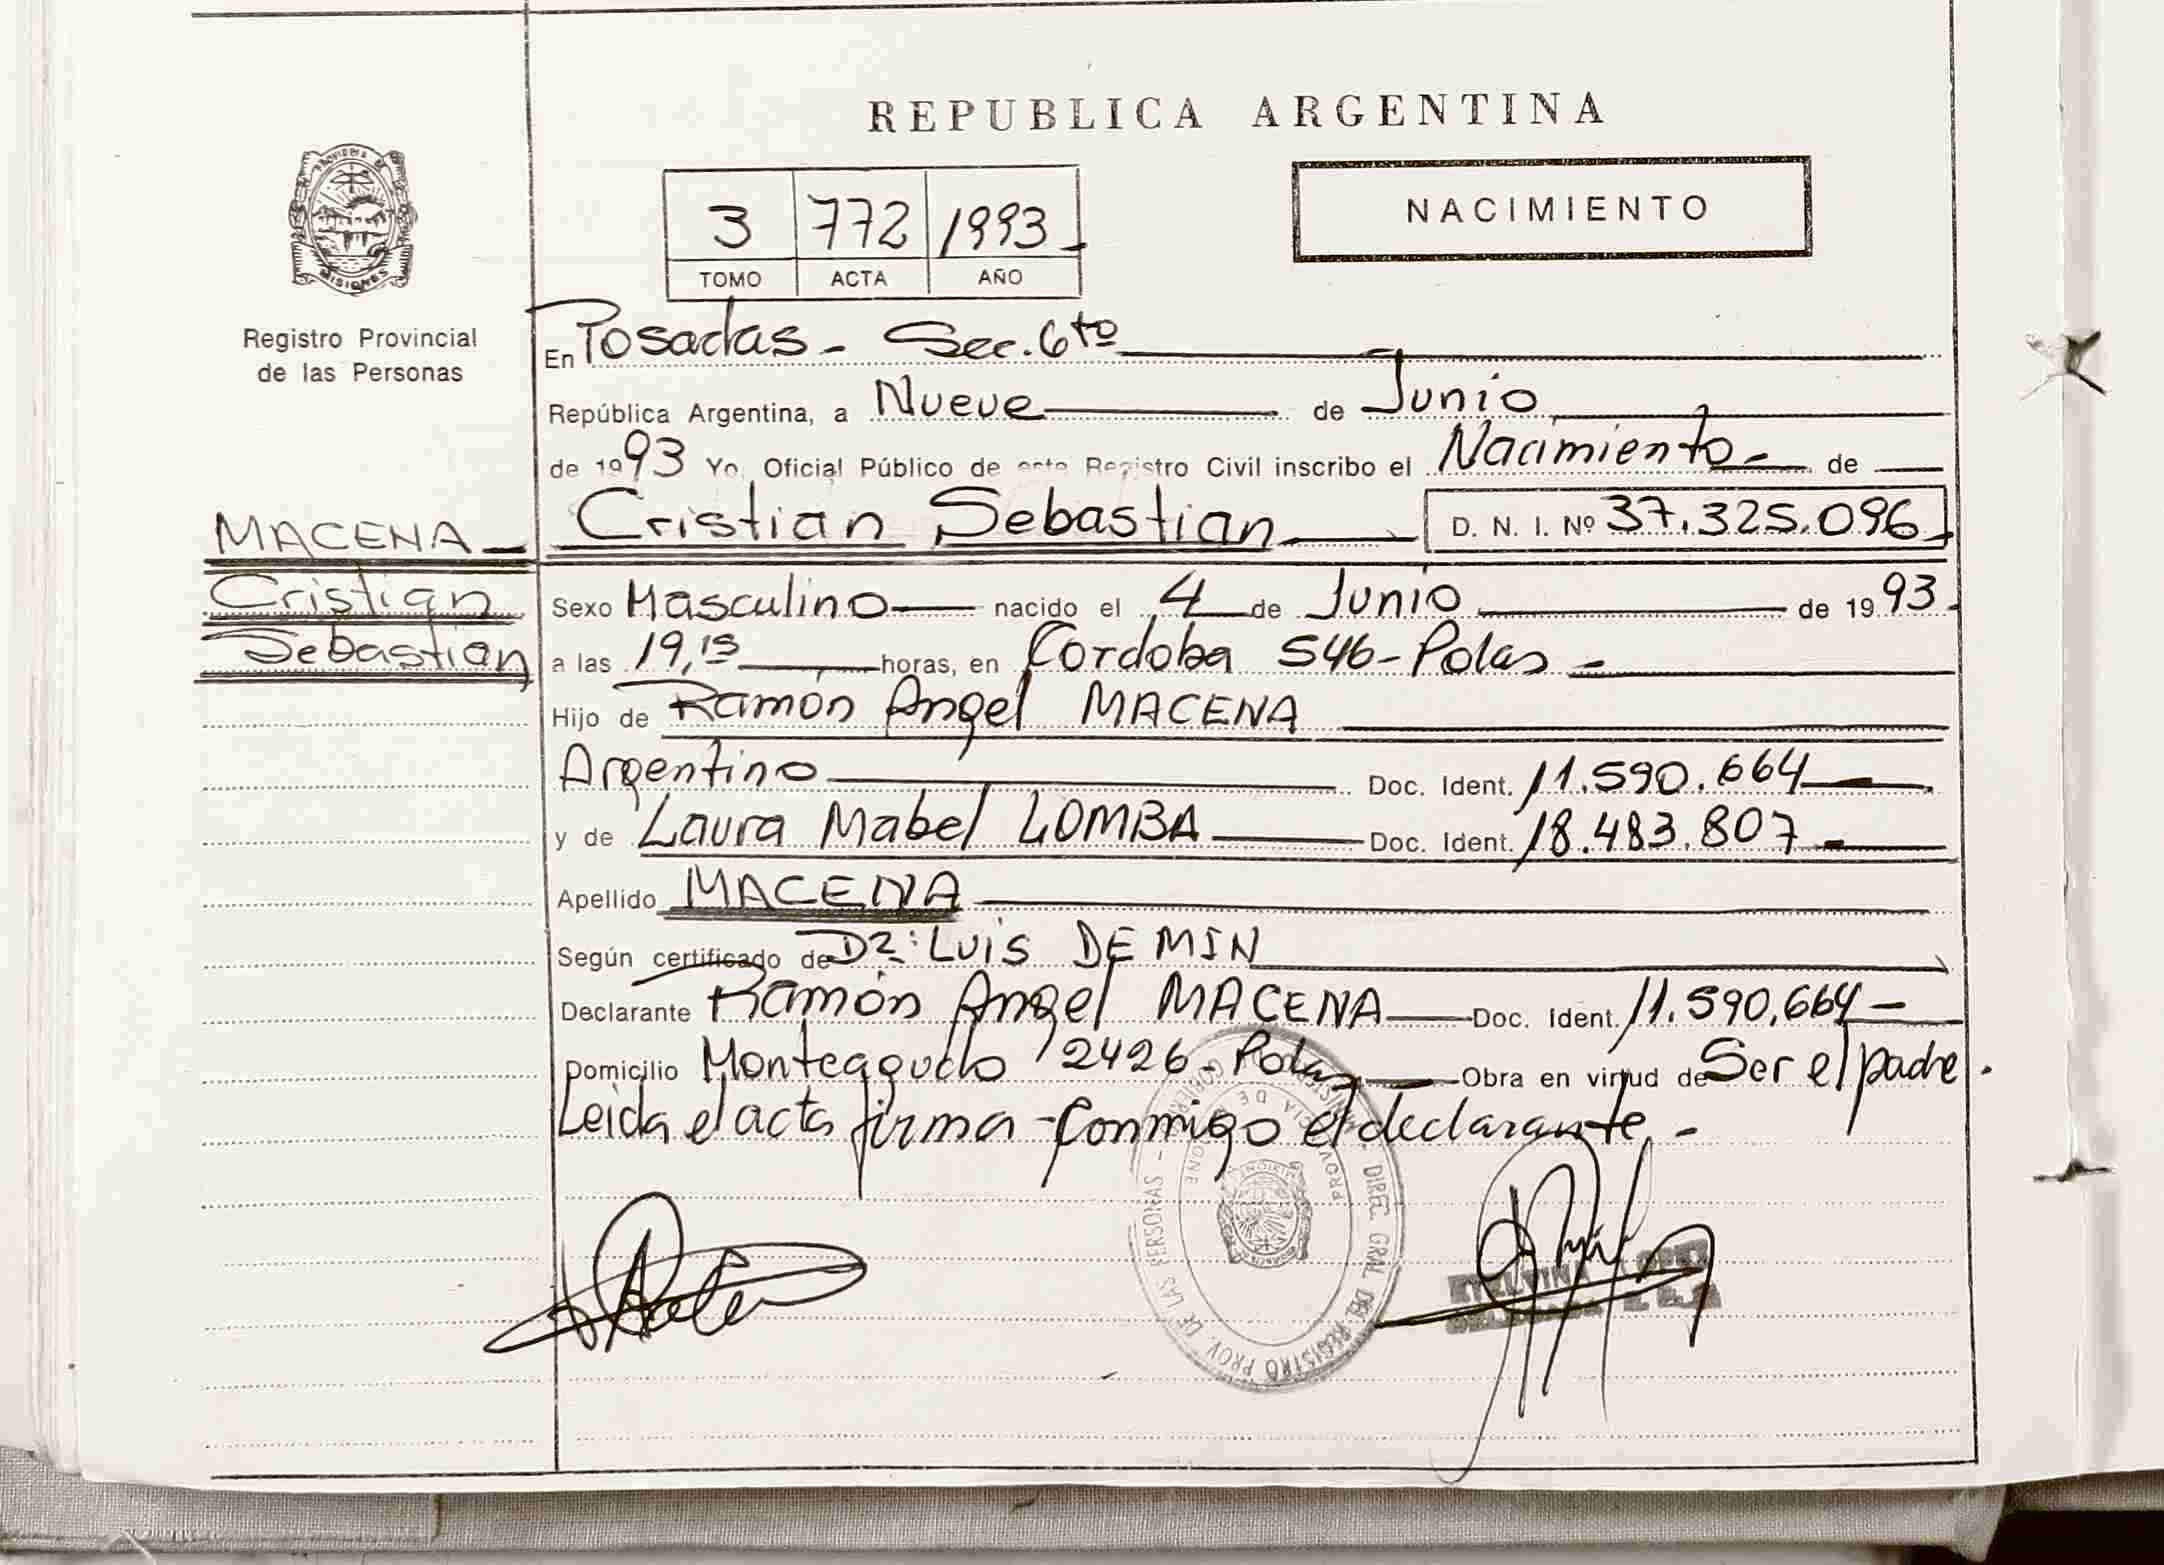 REPUBLICA ARGENTINA
PROVINCIA DE
MISIONES
Registro Provincial
de las Personas
3 772 1993
TOMO ACTA AÑO
NACIMIENTO
En Posadas - Sec. 6to
República Argentina, a Nueve de Junio
de 1993 Yo, Oficial Público de este Registro Civil inscribo el Nacimiento - de
MACENA
Cristian
Sebastian
Cristian Sebastian D. N. I. Nº 37.325.096
Sexo Masculino nacido el 4 de Junio de 1993
a las 19,15 horas, en Cordoba 546 - Pdas -
Hijo de Ramón Angel MACENA
Argentino Doc. Ident. 11.590.664
y de Laura Mabel LOMBA Doc. Ident. 18.483.807
Apellido MACENA
Según certificado de Dr: LUIS DEMIN
Declarante Ramón Angel MACENA Doc. Ident. 11.590.664
Domicilio Monteagudo 2426 - Pdas Obra en virtud de Ser el padre.
Leida el acta firma conmigo el declarante. -
DIREC. GRAL. DEL REGISTRO PROV. DE LAS PERSONAS -
PROVINCIA DE MISIONES